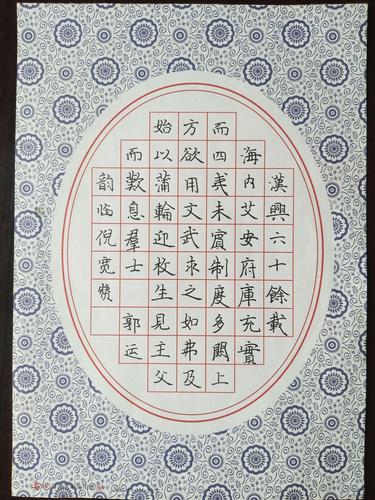 漢興六十餘載
海内艾安府庫充實
而四夷未賓制度多闕上
方欲用文武求之如弗及
始以蒲輪迎枚生見主父
而歎息羣士 郭运
韵临倪宽赞